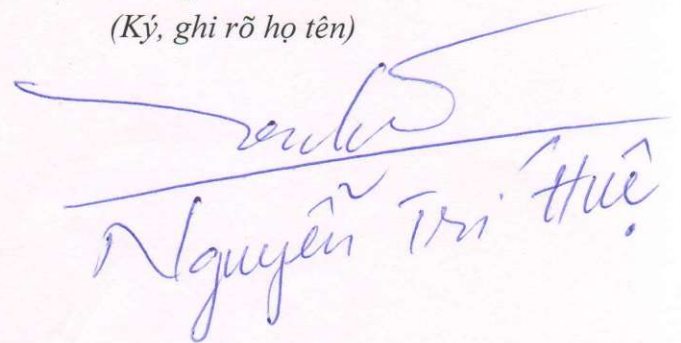 (Ký, ghi rõ họ tên)
Nguyễn Trí Huệ